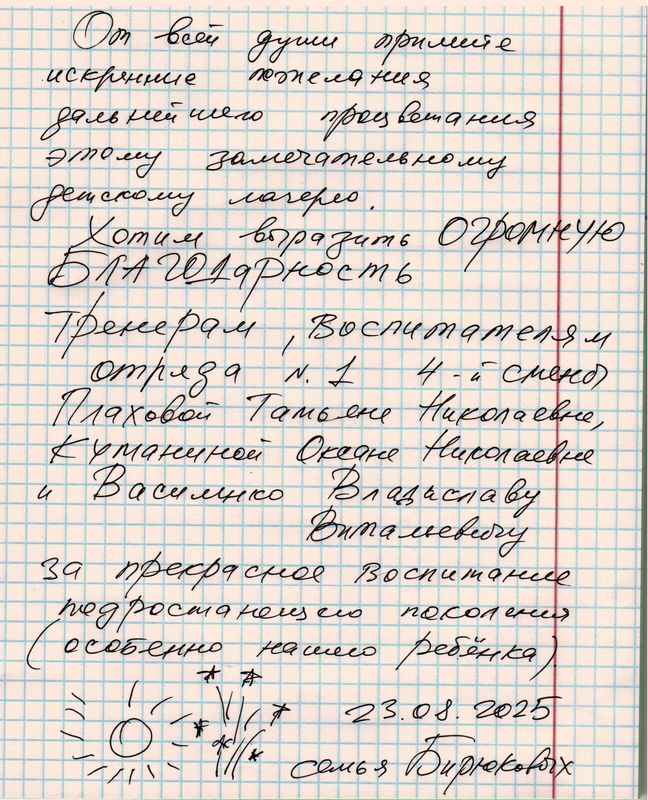 От всей души примите
искренние пожелания
дальнейшего процветания
этому замечательному
детскому лагерю.
Хотим выразить ОГРОМНУЮ
БЛАГОДарность
Тренерам, Воспитателям
отряда N.1 4-й смены
Плаховой Татьяне Николаевне,
Куманиной Оксане Николаевне
и Василенко Владиславу
Витальевичу
за прекрасное воспитание
подростающего поколения
(особенно нашего ребёнка)
23.08.2025
семья Бирюковых